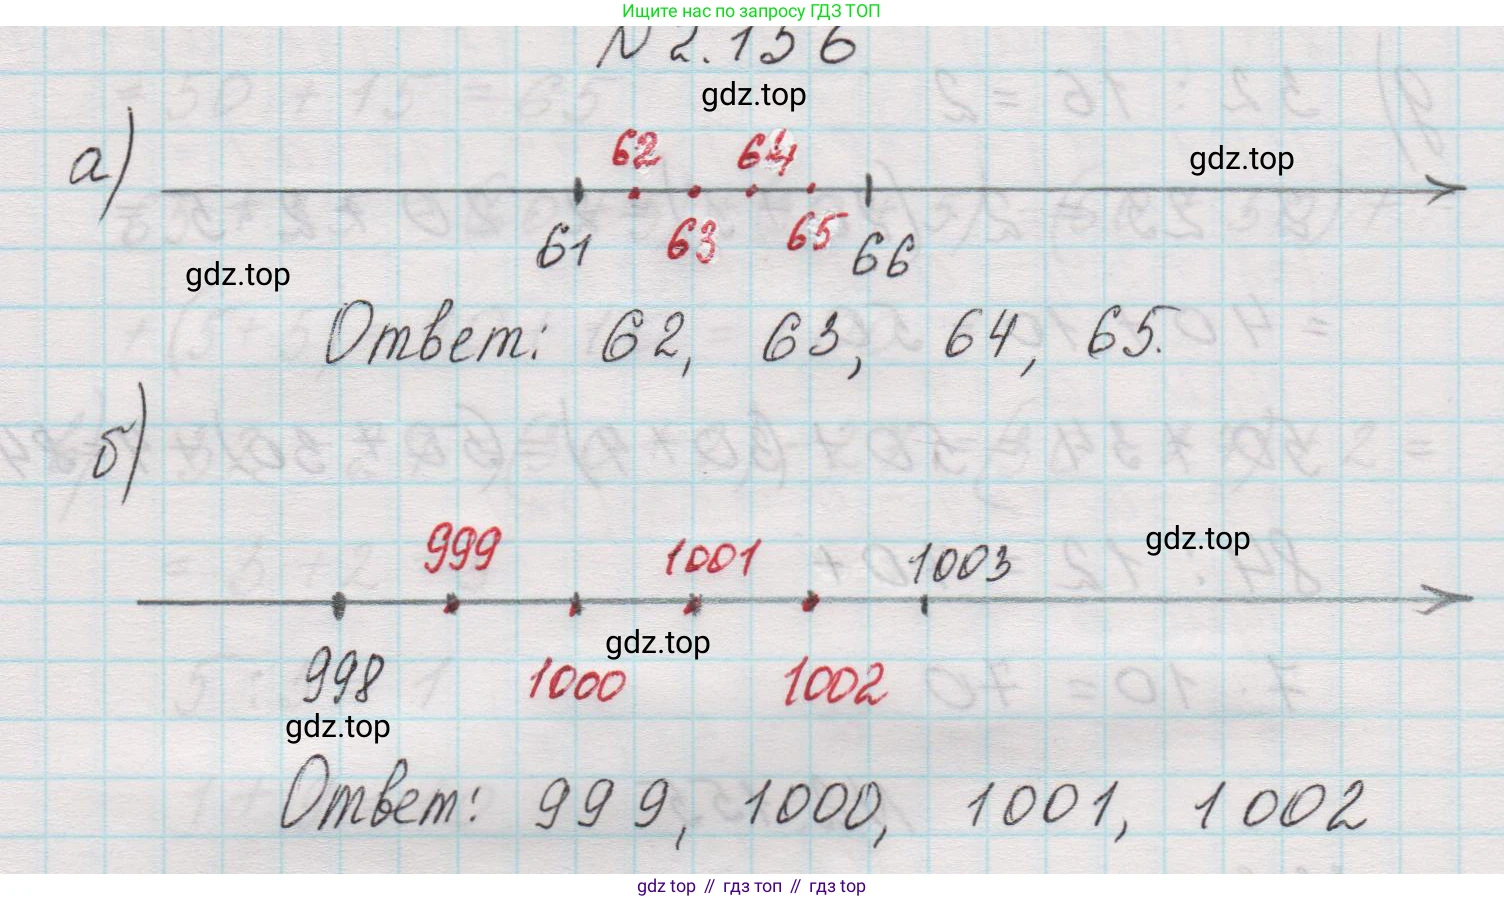 Ищите нас по запросу ГДЗ ТОП
N 2.156
gdz.top
а)
62 64
gdz.top
61 63 65 66
gdz.top
Ответ: 62, 63, 64, 65.
б)
999 1001 1003
gdz.top
gdz.top
998 1000 1002
gdz.top
Ответ: 999, 1000, 1001, 1002
gdz top // гдз топ // гдз top